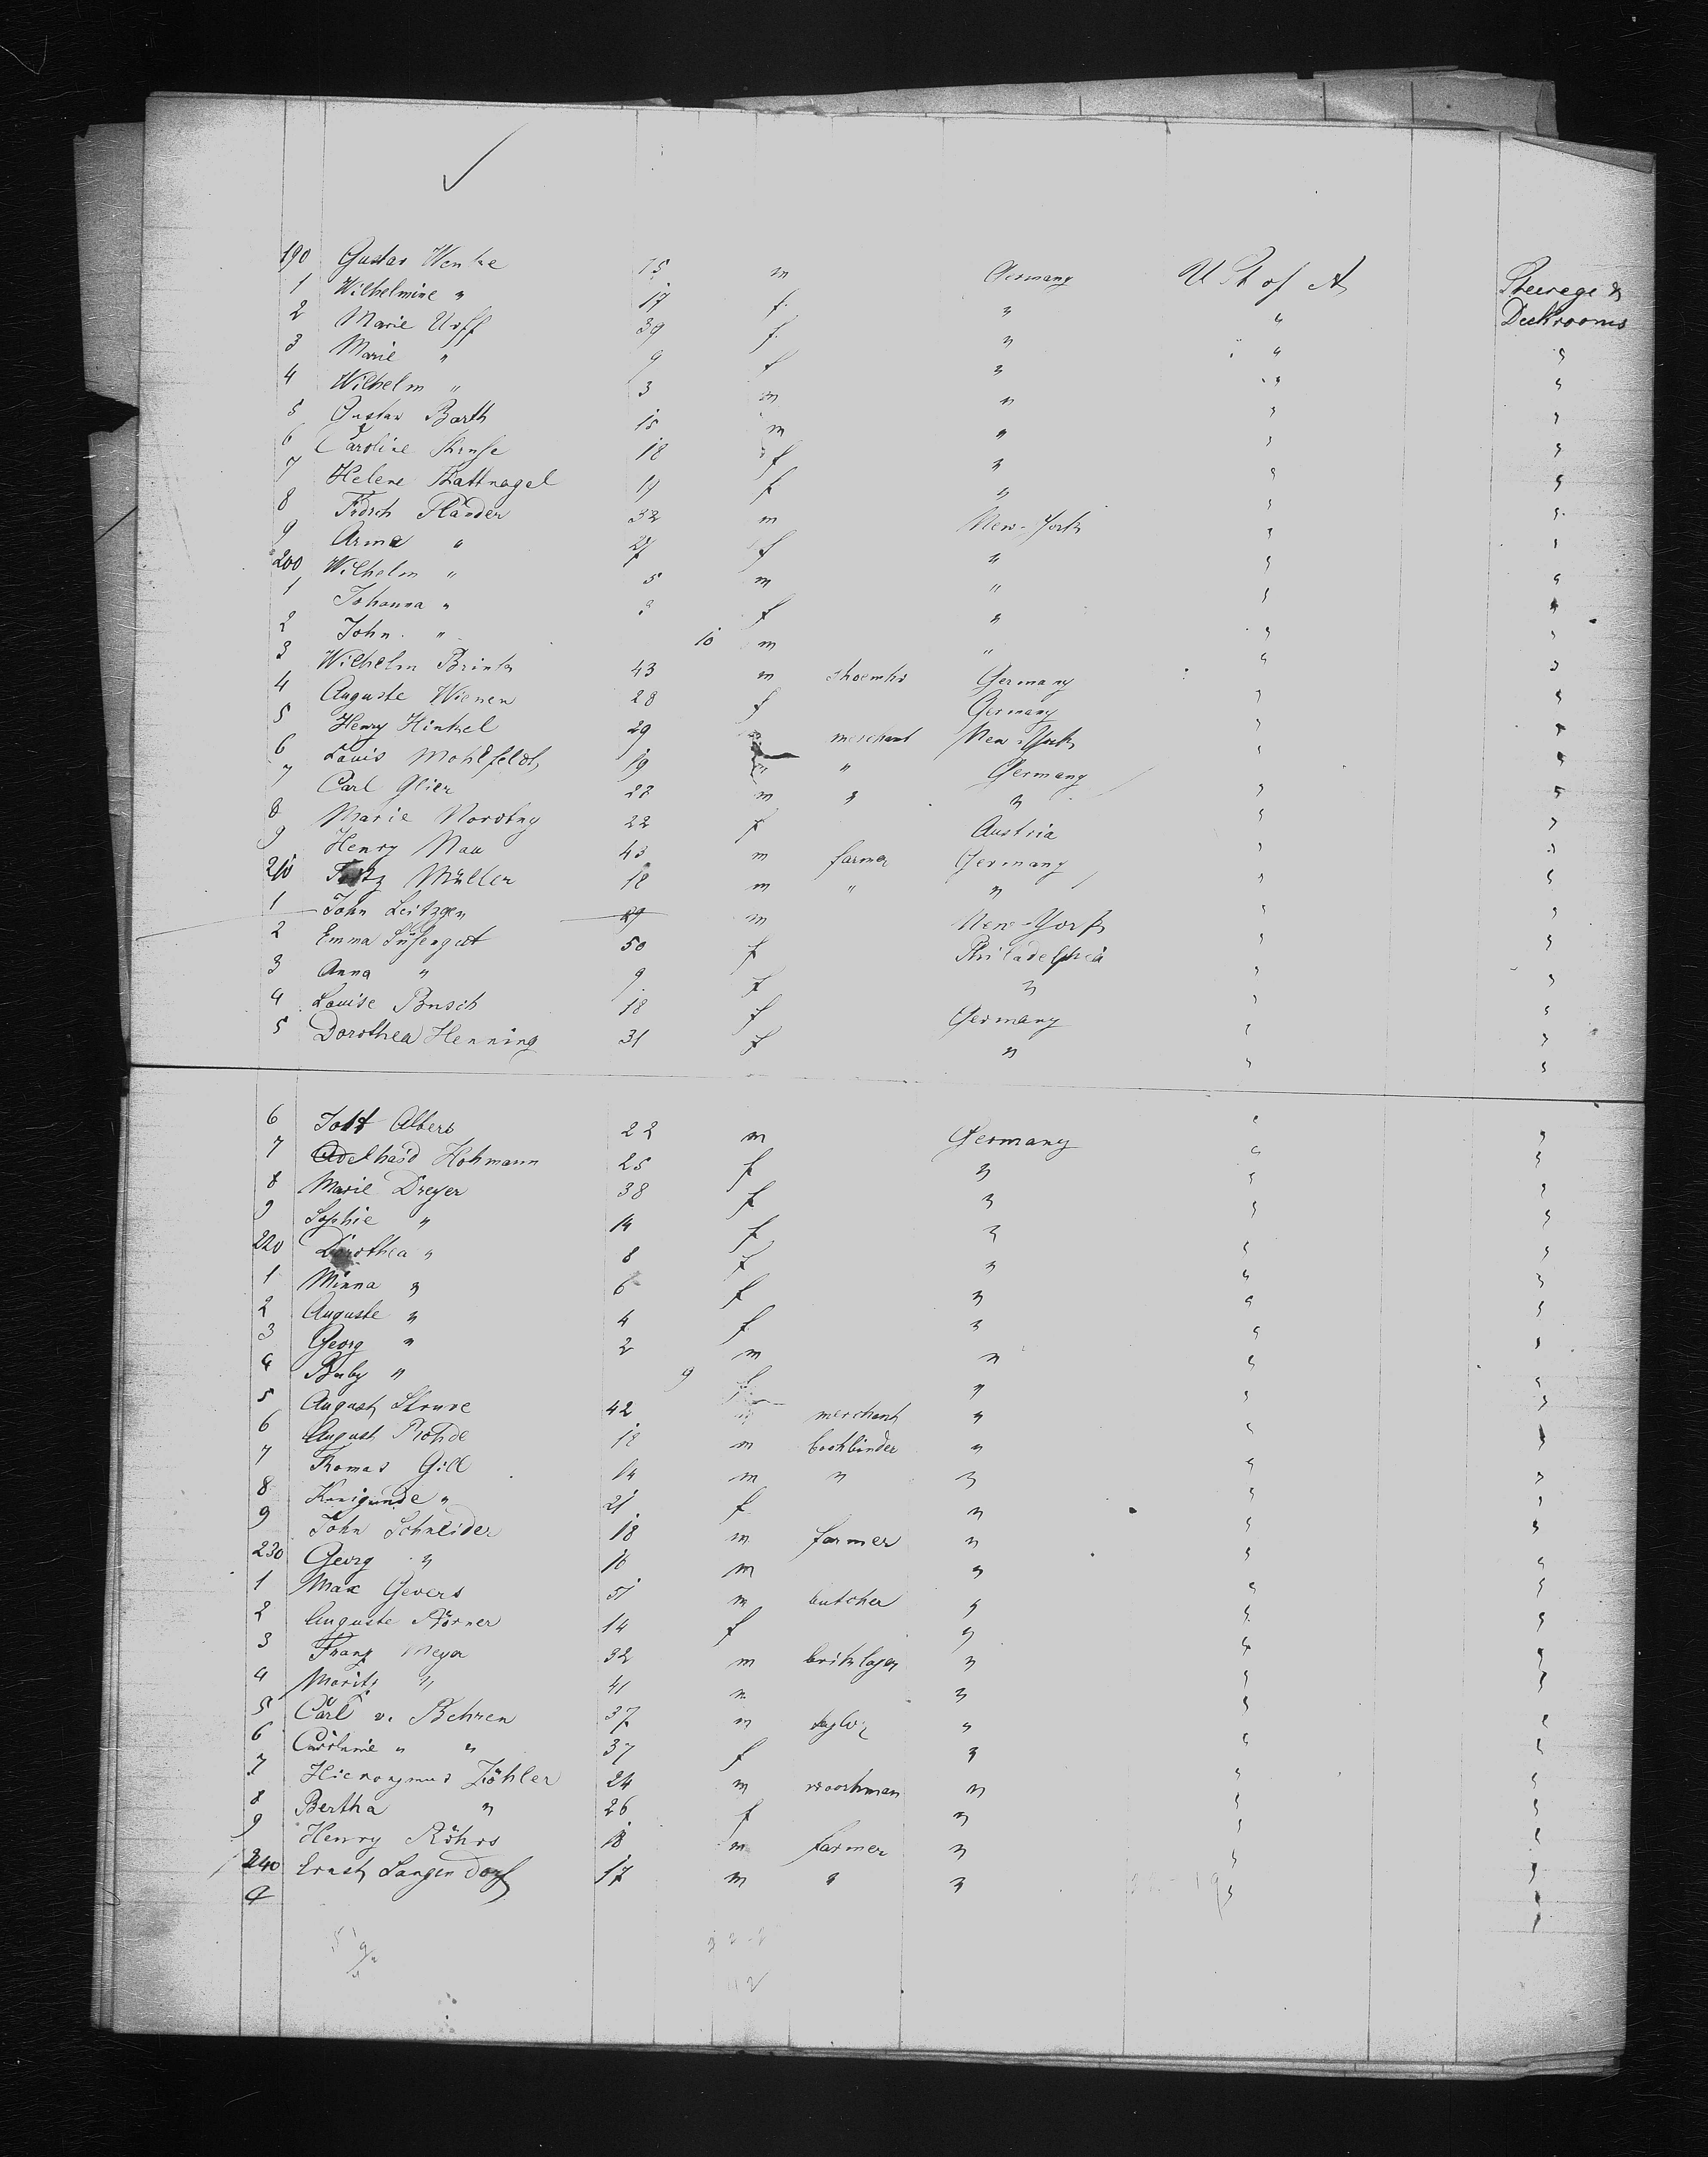 190 Gustav Wenke 15 m Germany U St of A Steerege &
1 Wilhelmine " 17 f " " Deckrooms
2 Marie Urff 39 f " " "
3 Marie " 9 f " " "
4 Wilhelm " 3 m " " "
5 Gustav Barth 15 m " " "
6 Caroline 18 f " " "
7 Helene 19 f " " "
8 Fidrch Pländer 32 m New-York " "
9 Anna " 27 f " " "
200 Wilhelm " 5 m " " "
1 Johanna " 3 f " " "
2 John " 10 m " " "
3 Wilhelm Brink 43 m shoemkr Germany " "
4 Auguste Wienen 28 f Germany " "
5 Henry Hinkel 29 merchant New York " "
6 Louis Mohlfeldt 19 " " Germany " "
7 Carl Glier 22 m " " " "
8 Marie 22 f Austria " "
9 Henry Nau 43 m farmer Germany " "
210 Fritz Müller 18 m " " " "
1 John Leitzgen 29 m New-York " "
2 Emma 50 f Philadelphia " "
3 Anna " 9 f " " "
4 Louise Busch 18 f Germany " "
5 Dorothea Henning 31 f " " "
6 Albers 22 m Germany " "
7 Adelhaid Hohmann 25 f " " "
8 Marie Dreyer 38 f " " "
9 Sophie " 14 f " " "
220 Dorothea " 8 f " " "
1 Minna " 6 f " " "
2 Auguste " 4 f " " "
3 Georg " 2 m " " "
4 Baby " 9 f " " "
5 August Struve 42 m merchant " " "
6 August Rohde 18 m bookbinder " " "
7 Thomas Gill 14 m " " " "
8 Kunigunde " 21 f " " "
9 John Schneider 18 m farmer " " "
230 Georg " 16 m " " "
1 Max Gevers 51 m butcher " " "
2 Auguste Körner 14 f " " "
3 Franz Meyer 32 m " " "
4 Moritz " 41 m " " "
5 Carl v. Behren 37 m " " "
6 " " 37 f " " "
7 Hieronymus Zöhler 24 m woorkman " " "
8 Bertha " 26 f " " "
9 Henry Röhrs 18 m farmer " " "
240 Ernst Langendorf 17 m " " " "